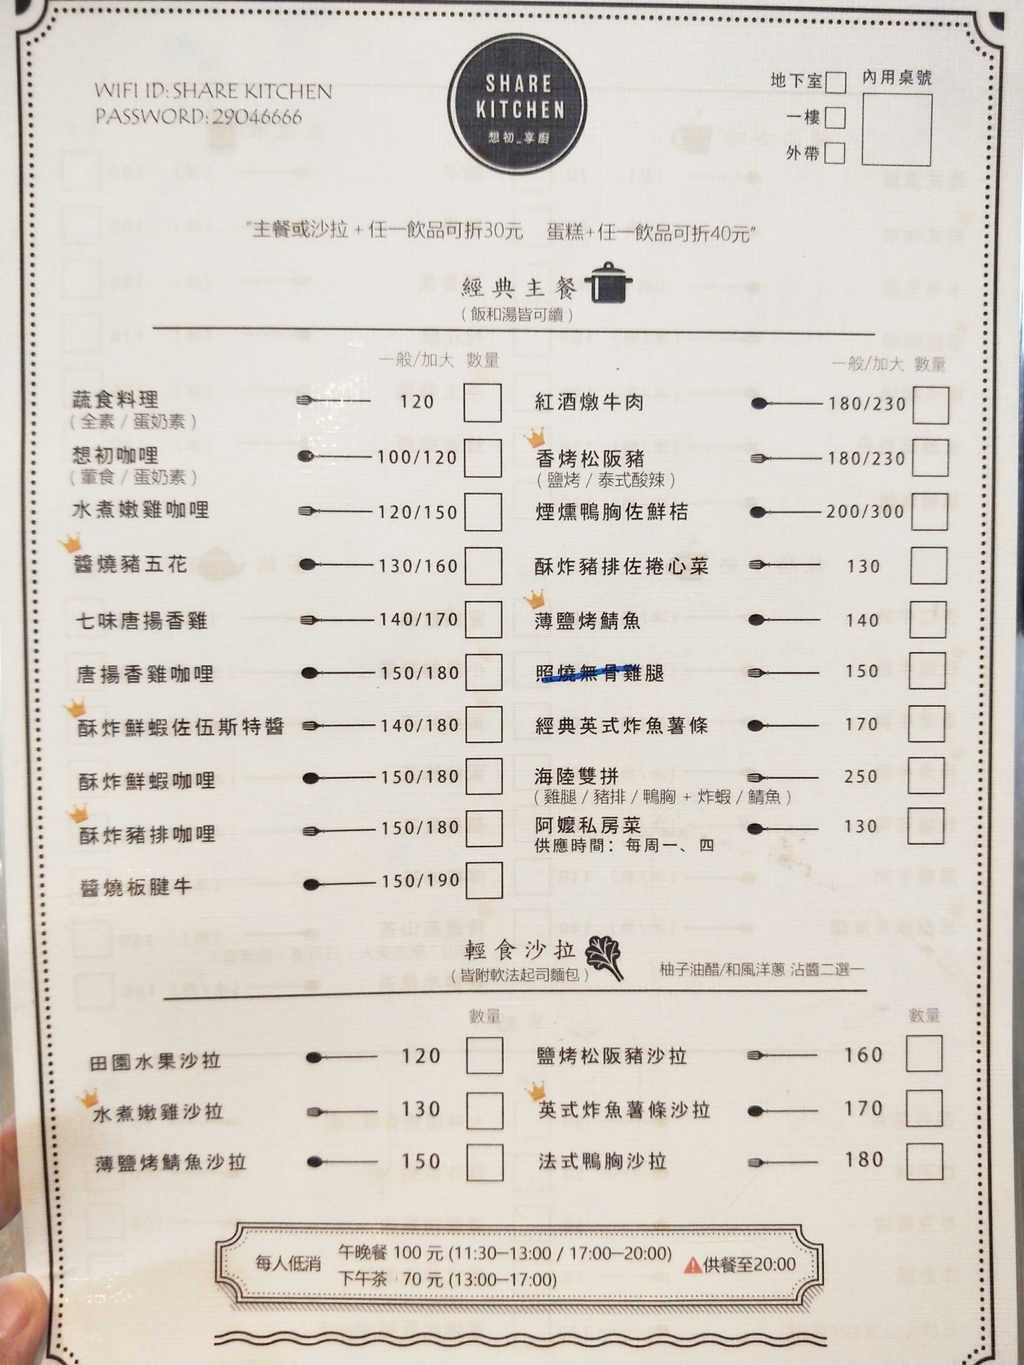 WIFI ID: SHARE KITCHEN
PASSWORD: 29046666
SHARE
KITCHEN
想初_享廚
地下室
一樓
外帶
內用桌號
"主餐或沙拉 + 任一飲品可折30元 蛋糕+任一飲品可折40元"
經典主餐
( 飯和湯皆可續 )
一般/加大 數量
蔬食料理 120
( 全素 / 蛋奶素 )
想初咖哩 100/120
( 葷食 / 蛋奶素 )
水煮嫩雞咖哩 120/150
醬燒豬五花 130/160
七味唐揚香雞 140/170
唐揚香雞咖哩 150/180
酥炸鮮蝦佐伍斯特醬 140/180
酥炸鮮蝦咖哩 150/180
酥炸豬排咖哩 150/180
醬燒板腱牛 150/190
一般/加大 數量
紅酒燉牛肉 180/230
香烤松阪豬 180/230
( 鹽烤 / 泰式酸辣 )
煙燻鴨胸佐鮮桔 200/300
酥炸豬排佐捲心菜 130
薄鹽烤鯖魚 140
照燒無骨雞腿 150
經典英式炸魚薯條 170
海陸雙拼 250
( 雞腿 / 豬排 / 鴨胸 + 炸蝦 / 鯖魚 )
阿嬤私房菜 130
供應時間：每周一、四
輕食沙拉
( 皆附軟法起司麵包 )
柚子油醋/和風洋蔥 沾醬二選一
數量
田園水果沙拉 120
水煮嫩雞沙拉 130
薄鹽烤鯖魚沙拉 150
數量
鹽烤松阪豬沙拉 160
英式炸魚薯條沙拉 170
法式鴨胸沙拉 180
每人低消
午晚餐 100 元 (11:30—13:00 / 17:00—20:00)
下午茶 70 元 (13:00—17:00)
供餐至20:00